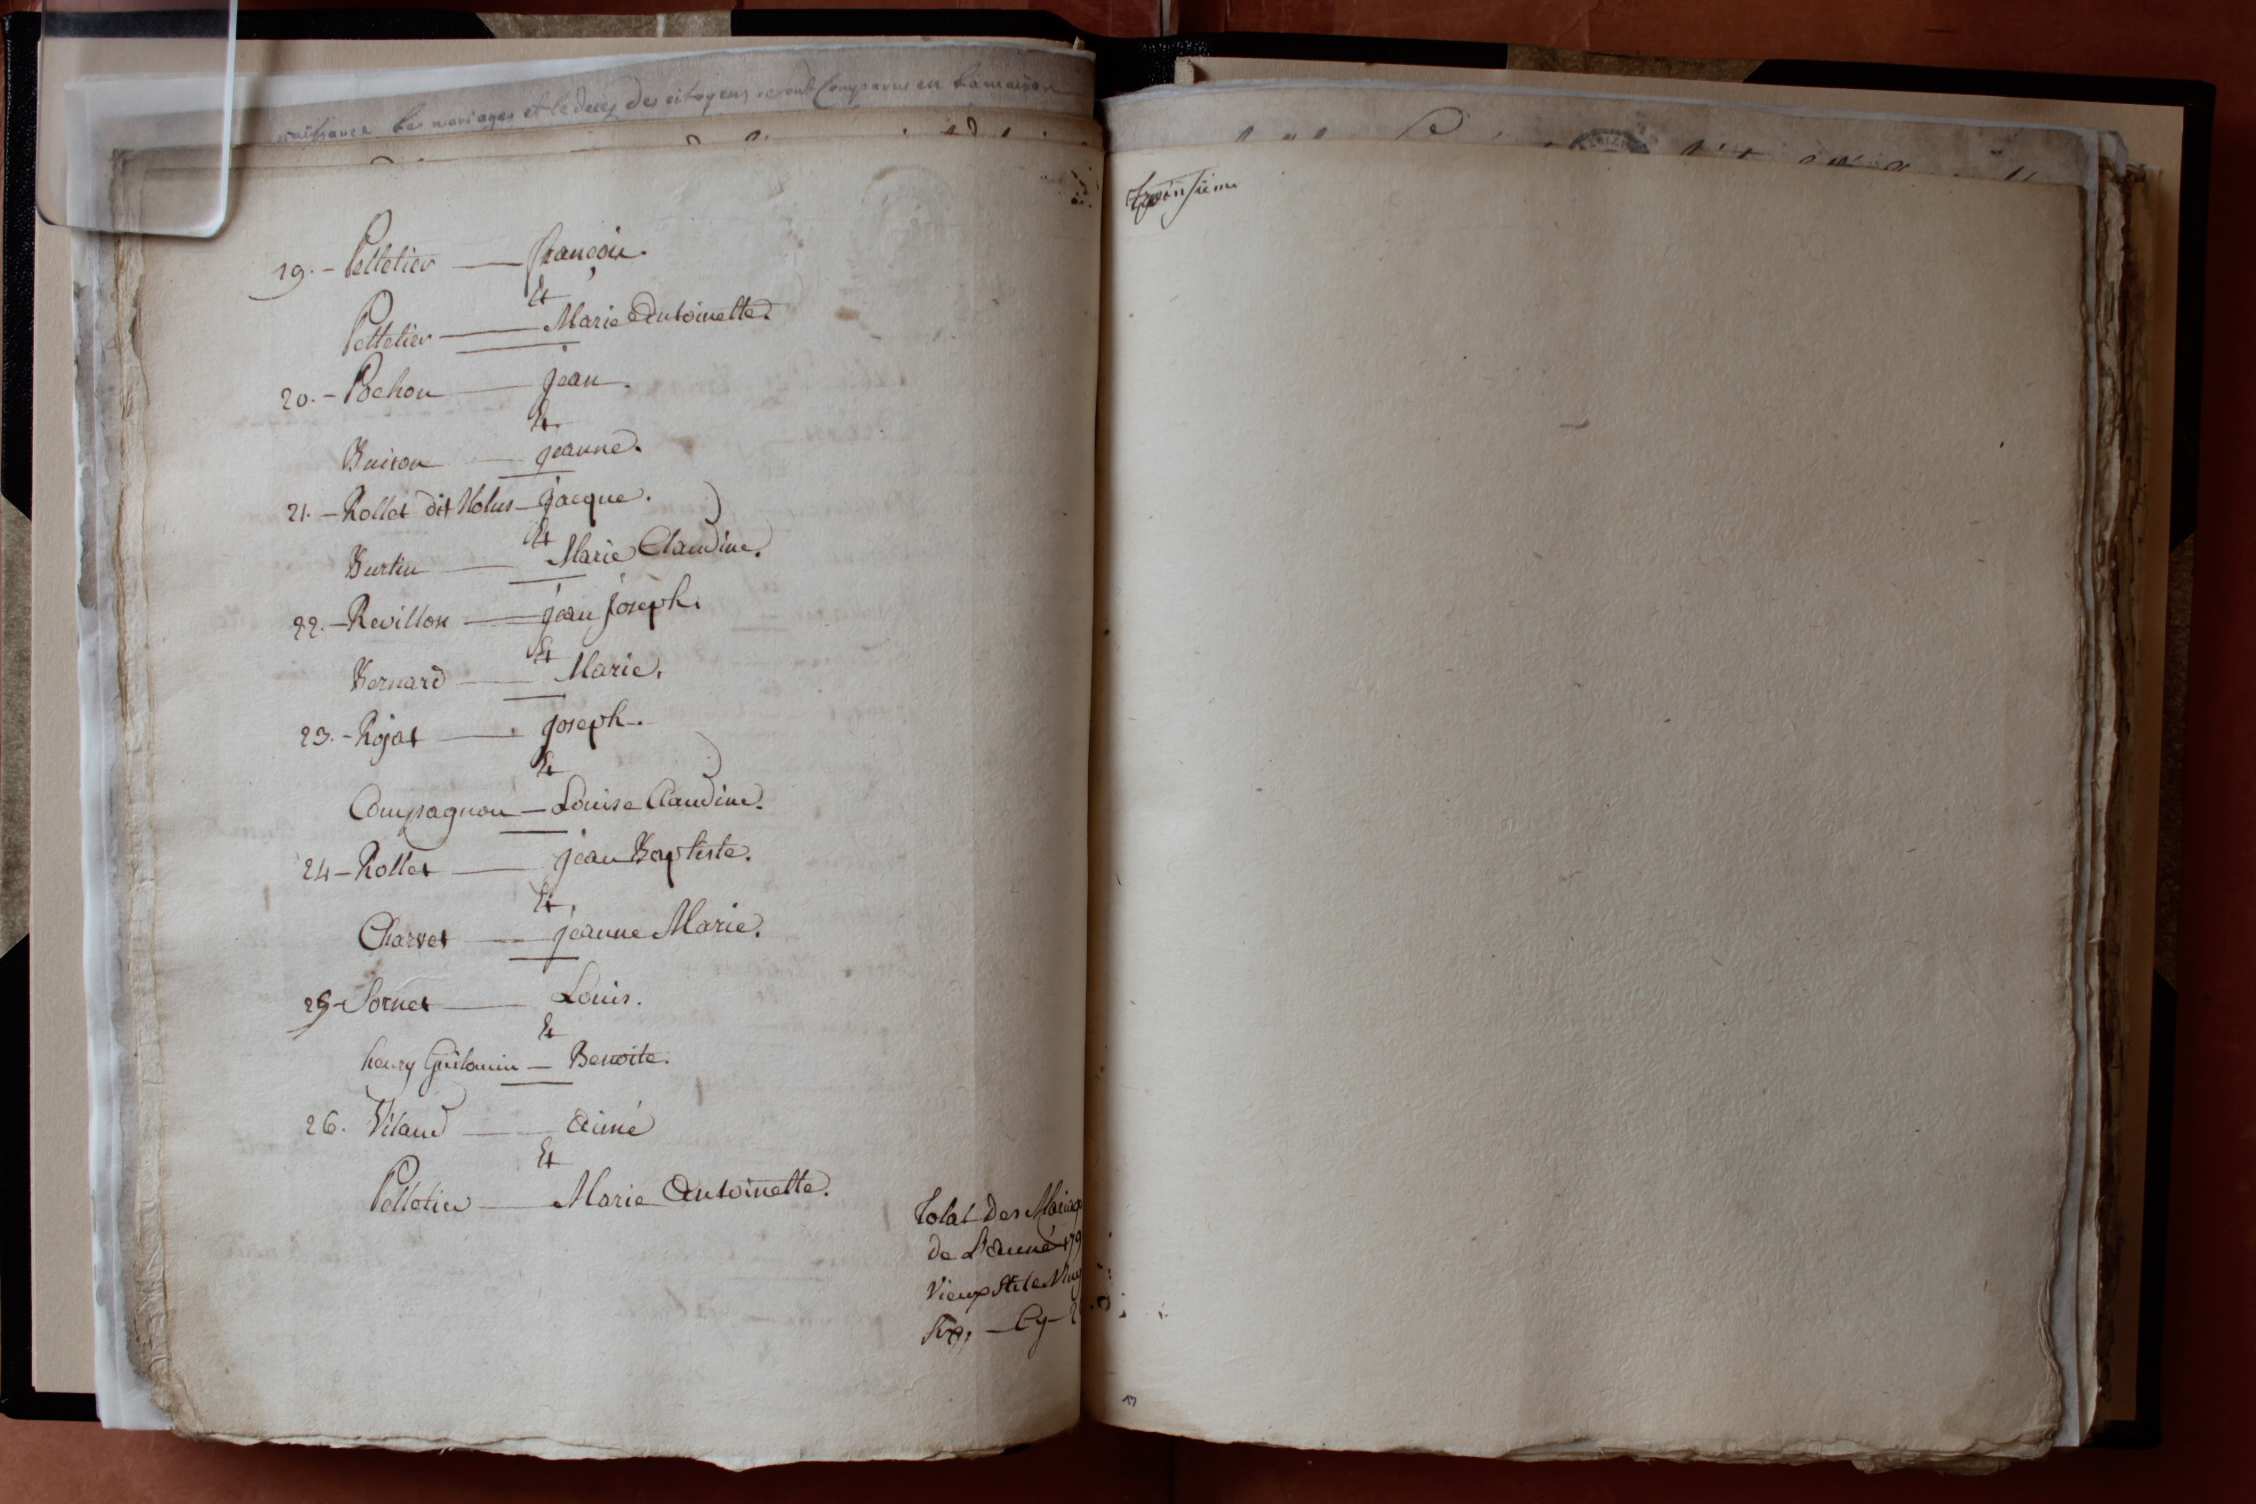 naissance les mariages et le deces des citoyens seront Comparus en la maison
19. - Pelletier — françois.
Et
Pelletier — Marie Antoinette.
20. - Bochon — jean.
Et
Buison — jeanne.
21. - Rollet dit Nolus - jacque.
Et
Burtin — Marie Claudine.
22. - Revillon — jean joseph.
Et
Bernard — Marie.
23. - Rojat — joseph.
Et
Compagnon — Louise Claudine.
24 - Rollet — jean Baptiste.
Et
Charvet — jeanne Marie.
25 - Sornet — Louis.
Et
henry Guilomin — Benoite.
26. Vitaud — aimé
Et
Pelletier — Marie Antoinette.
Total Des Mariag
de L'année 179
Vieux Stile